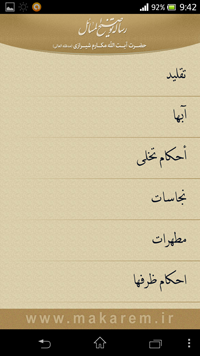 92% 9:42
رساله توضیح المسائل
حضرت آیت الله مکارم شیرازی (مدظله العالی)
تقلید
آبها
أحکام تخلی
نجاسات
مطهرات
احکام ظرفها
www.makarem.ir